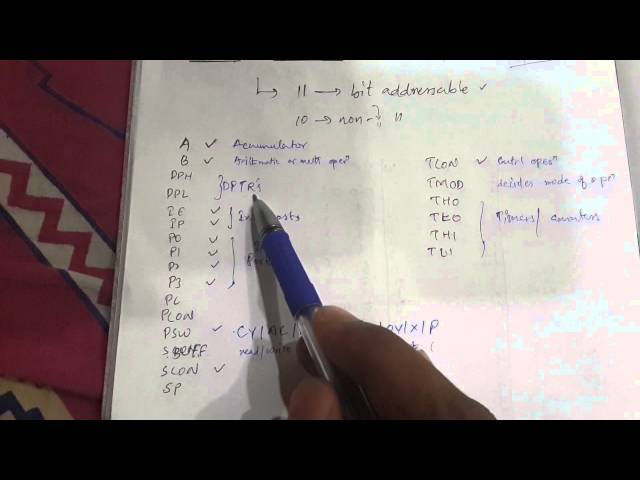 ↳ 11 → bit addressable ✓
10 → non- " "
A ✓ Accumulator
B ✓ Arithmatic or multi oper^n
DPH
DPL } DPTR's
IE ✓
IP ✓
P0 ✓
P1 ✓
P2 ✓
P3 ✓
PC
PCON
PSW ✓ CY/AC/ /OV/X/P
SBUFF read/write
SCON ✓
SP
TCON ✓ Cntrl oper^n
TMOD decides mode of op^n
TH0
TL0 } Timers/ counters
TH1
TL1